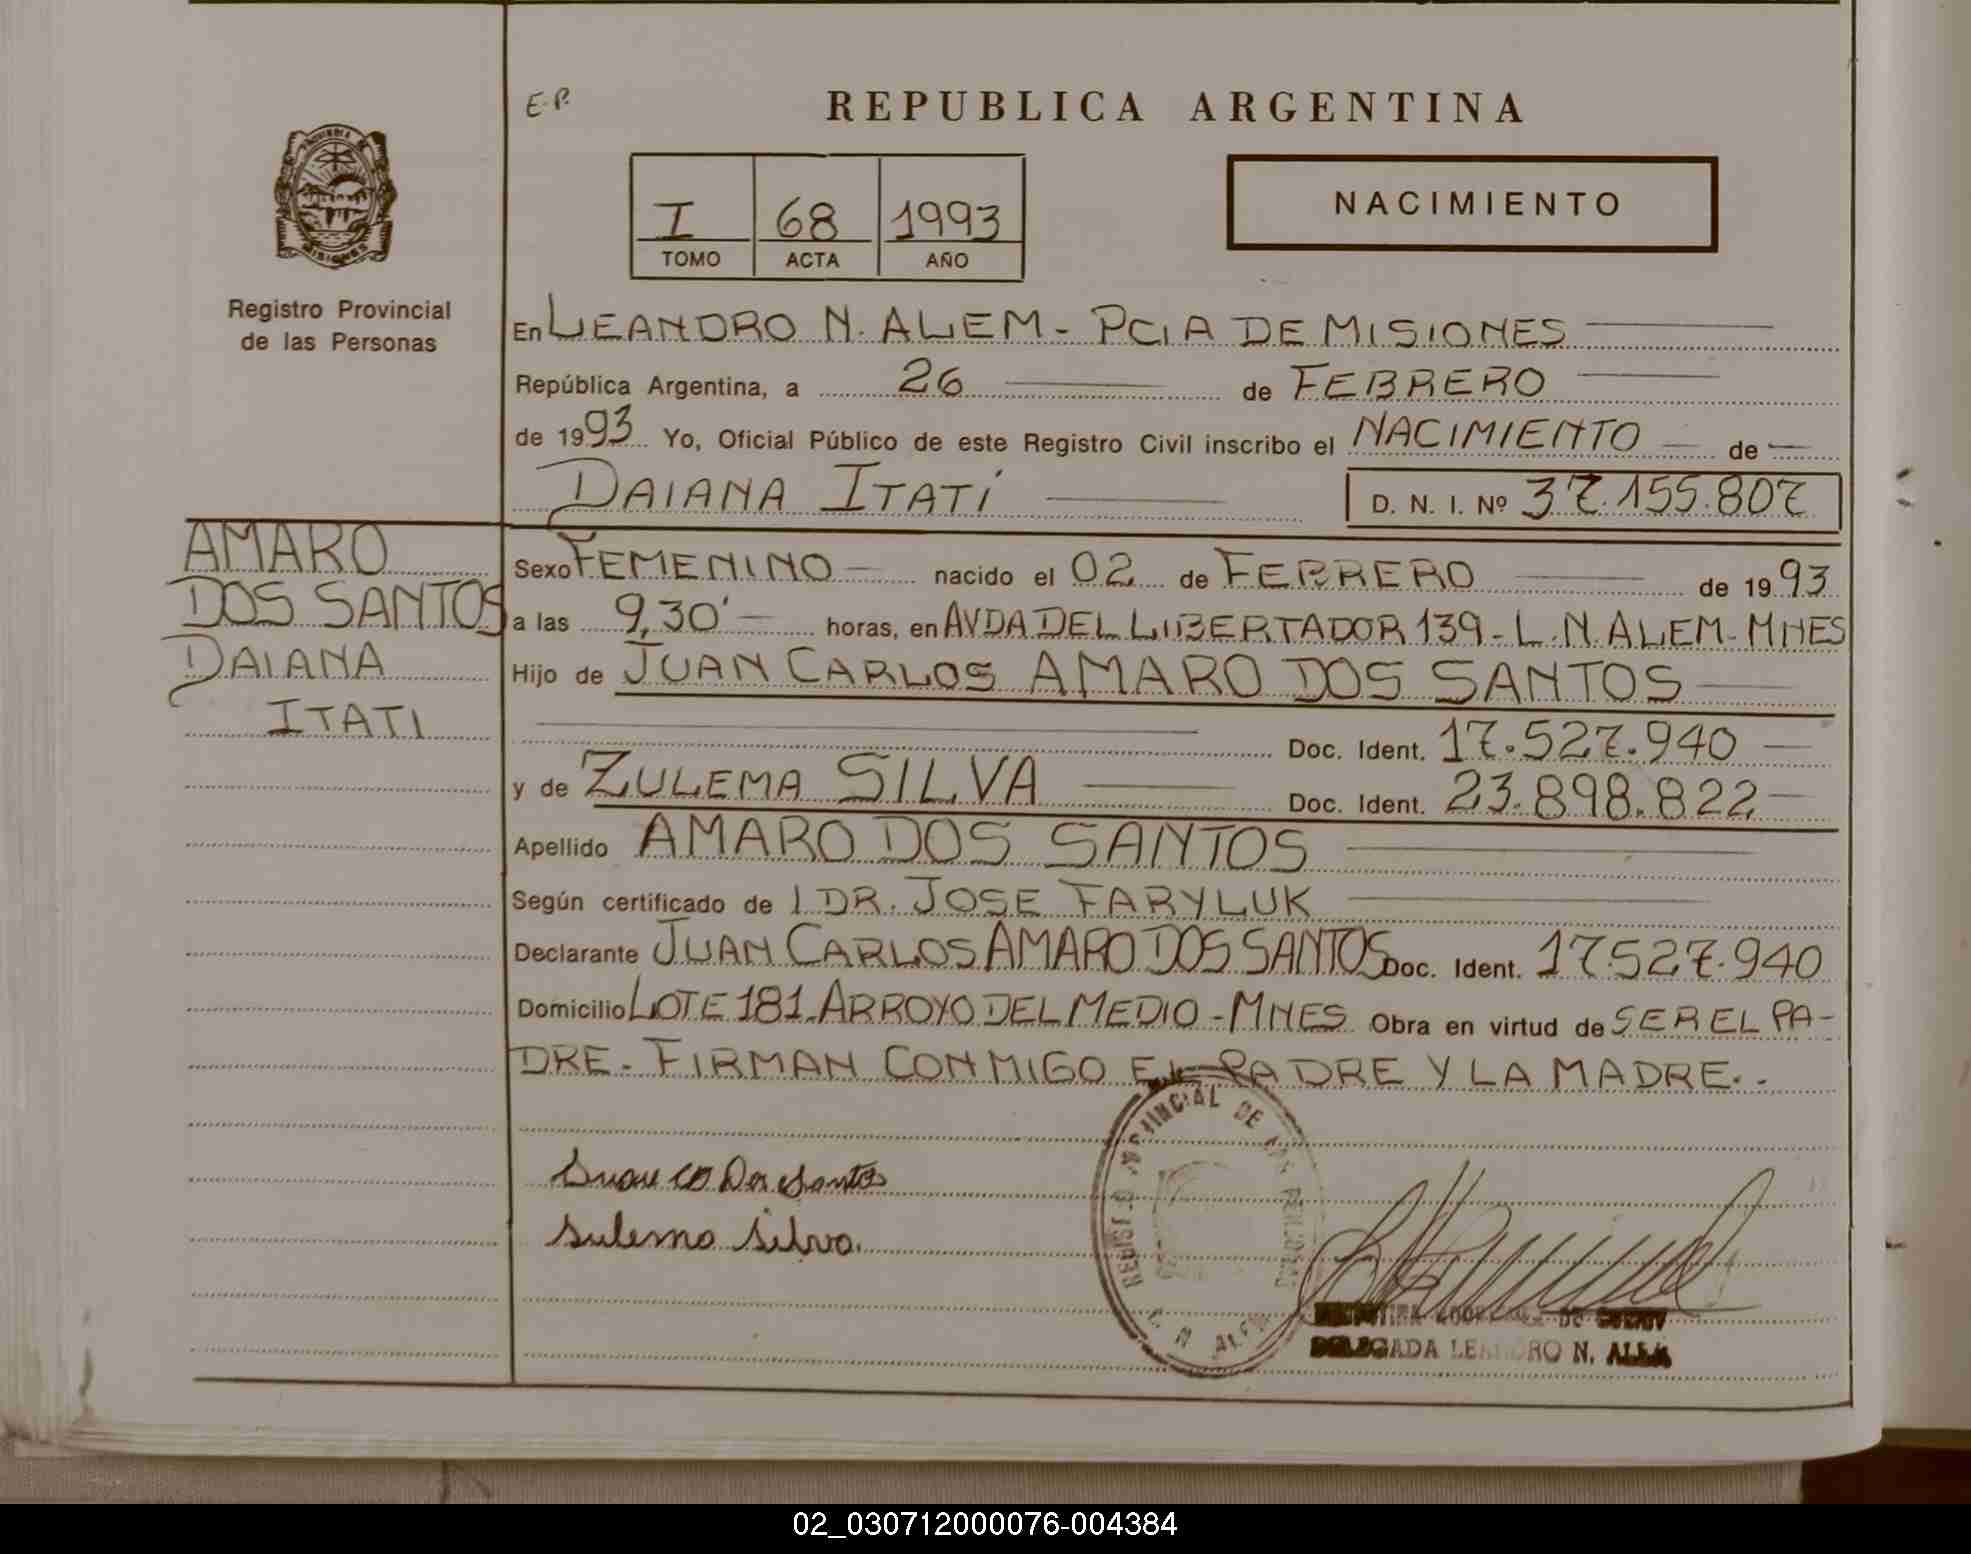 E.P.
REPUBLICA ARGENTINA
I 68 1993
TOMO ACTA AÑO
NACIMIENTO
MISIONES
Registro Provincial
de las Personas
En LEANDRO N. ALEM - PCIA DE MISIONES
República Argentina, a 26 de FEBRERO
de 1993 Yo, Oficial Público de este Registro Civil inscribo el NACIMIENTO de
DAIANA ITATI D. N. I. Nº 37.155.807
AMARO
DOS SANTOS
DAIANA
ITATI
Sexo FEMENINO nacido el 02 de FEBRERO de 1993
a las 9,30' horas, en AVDA DEL LIBERTADOR 139 - L. N. ALEM - MNES
Hijo de JUAN CARLOS AMARO DOS SANTOS
Doc. Ident. 17.527.940
y de ZULEMA SILVA Doc. Ident. 23.898.822
Apellido AMARO DOS SANTOS
Según certificado de 1 DR. JOSE FARYLUK
Declarante JUAN CARLOS AMARO DOS SANTOS Doc. Ident. 17527.940
Domicilio LOTE 181 - ARROYO DEL MEDIO - MNES Obra en virtud de SER EL PA-
DRE - FIRMAN CONMIGO EL PADRE Y LA MADRE. .
Dos Santos
Sulema Silva.
REGISTRO PROVINCIAL DE LAS PERSONAS
L. N. ALEM
DELEGADA LEANDRO N. ALEM
02_030712000076-004384